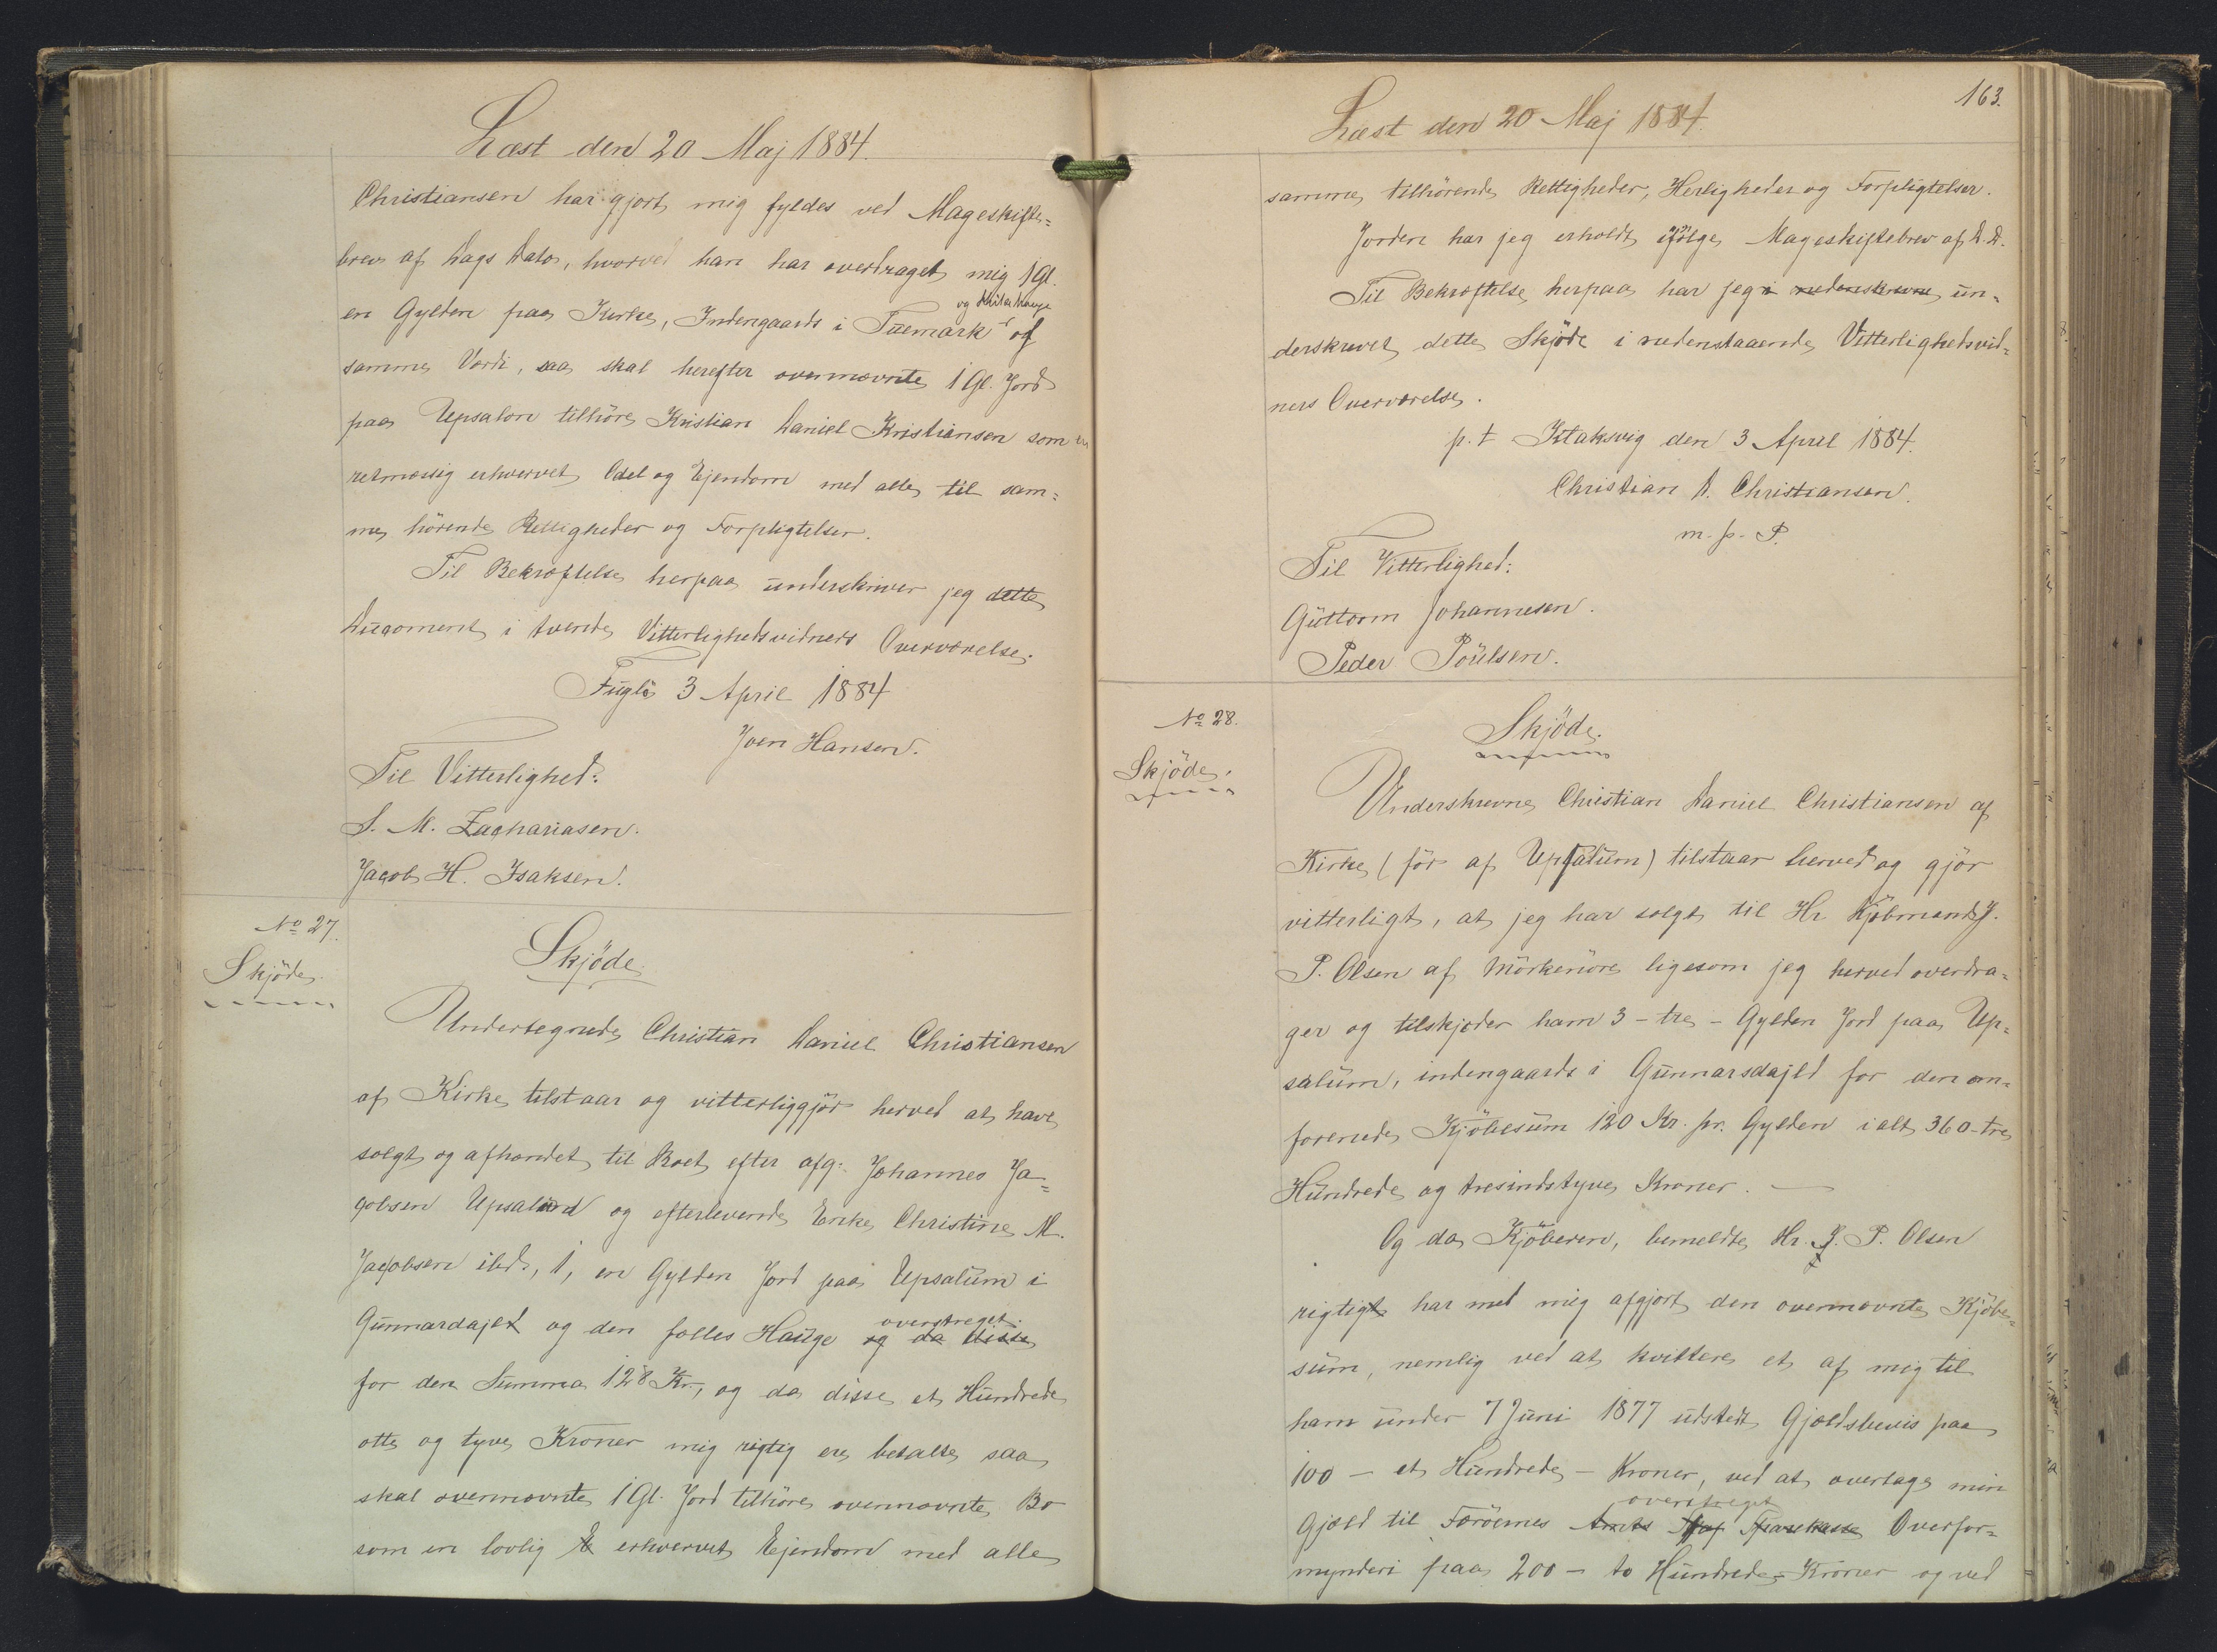 Læst den 20 Maj 1884.
Christiansen har gjort mig fyldes ved Mageskifte=
brev af Dags Dato, hvorved han har overdraget mig 1 Gl.
og Kulahauge
en Gylden paa Kirke, Indengaards i Tuemark of
samme Værdi, saa skal herefter ovennævnte 1 Gl. Jord
paa Upsalon tilhøre Kristian Daniel Kristiansen som en
retmæssig erhvervet Odel og Ejendom med alle til sam=
me hörende Rettigheder og Forpligtelser.
Til Bekræftelse herpaa underskriver jeg dette
Dugoment i tvende Vitterlighedsvidners Overværelse.
Fuglö 3 April 1884
Joen Hansen.
Til Vitterlighed:
S. M. Zachariasen.
Jacob H. Isaksen.
No 27.
Skjöde.
Skjöde.
Undertegnede Christian Daniel Christiansen
af Kirke tilstaar og vitterliggjör herved at have
solgt og afhændet til Boet efter afg. Johannes Ja=
cobsen Upsalum og efterlevende Enke Christine M.
Jacobsen ibd., 1, en Gylden Jord paa Upsalum i
Gunnardajet og den fælles Hauge og da disse
overstreget.
for den Summa 128 Kr., og da disse et Hundrede
otte og tyve Kroner mig rigtig ere betalte saa
skal ovennævnte 1 Gl. Jord tilhöre ovennævnte Bo
som en lovlig E erhvervet Ejendom med alle
163.
Læst den 20 Maj 1884.
samme tilhörende Rettigheder, Herligheder og Forpligtelser.
Jorden har jeg erholdt ifölge Mageskiftebrev af D. D.
Til Bekræftelse herpaa har jeg i nedenskrevne un=
derskrevet dette Skjöde i nedenstaaende Vitterlighedsvid=
ners Overværelse.
p. t Klaksvig den 3 April 1884.
Christian D. Christiansen.
m. p. P.
Til Vitterlighed:
Guttorm Johannesen.
Peder Poulsen.
No 28.
Skjöde.
Skjöde.
Underskrevne Christian Daniel Christiansen af
Kirke (för af Upsalum) tilstaar herved og gjör
vitterligt, at jeg har solgt til Hr Kjöbmand J.
P. Olsen af Mörkenöre ligesom jeg herved overdra=
ger og tilskjøder ham 3 – tre – Gylden Jord paa Up=
salum, indengaards i Gunnarsdajld for den om=
forenede Kjöbesum 120 Kr. pr. Gylden ialt 360 – tre
Hundrede og tresindstyve Kroner. —
Og da Kjöberen, bemeldte Hr. J. P. Olsen
rigtigt har med mig afgjort den ovennævnte Kjöbe=
sum, nemlig ved at kvittere et af mig til
ham under 7 Juni 1877 udstedt Gjældsbevis paa
100 – et Hundrede – Kroner, ved at overtage min
overstreget
Gjæld til Færöernes Amts Spar Sparekasse Overfor=
mynderi paa 200 – to Hundrede – Kroner og ved